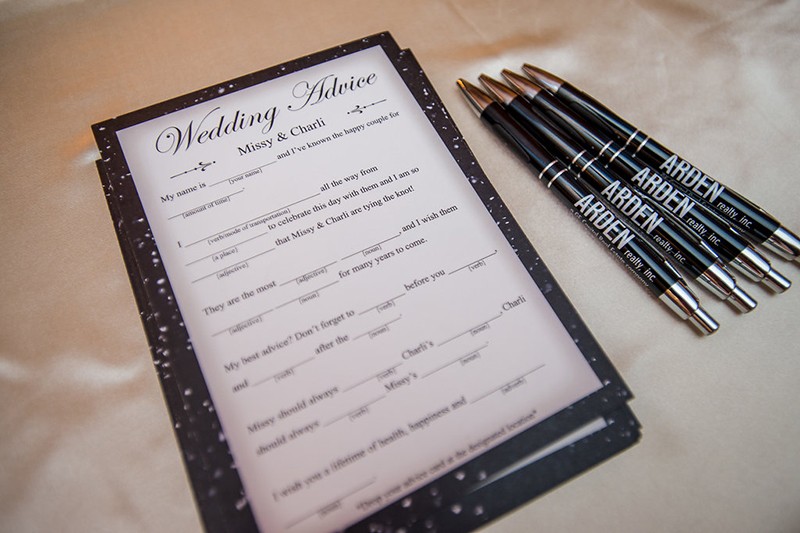 Wedding Advice
Missy & Charli
My name is ____________ and I've known the happy couple for
[your name]
____________.
[amount of time]
I ____________ all the way from
[verb/mode of transportation]
____________ to celebrate this day with them and I am so
[a place]
____________ that Missy & Charli are tying the knot!
[adjective]
They are the most ____________ ____________, and I wish them
[adjective] [noun]
____________ ____________ for many years to come.
[adjective] [noun]
My best advice? Don't forget to ____________ before you ____________,
[verb] [verb]
and ____________ after the ____________.
[verb] [noun]
Missy should always ____________ Charli's ____________, Charli
[verb] [noun]
should always ____________ Missy's ____________.
[verb] [noun]
I wish you a lifetime of health, happiness and ____________
[adverb]
____________.
[noun]
*Drop your advice card at the designated location*
ARDEN realty, inc.
ARDEN realty, inc.
ARDEN realty, inc.
ARDEN realty, inc.